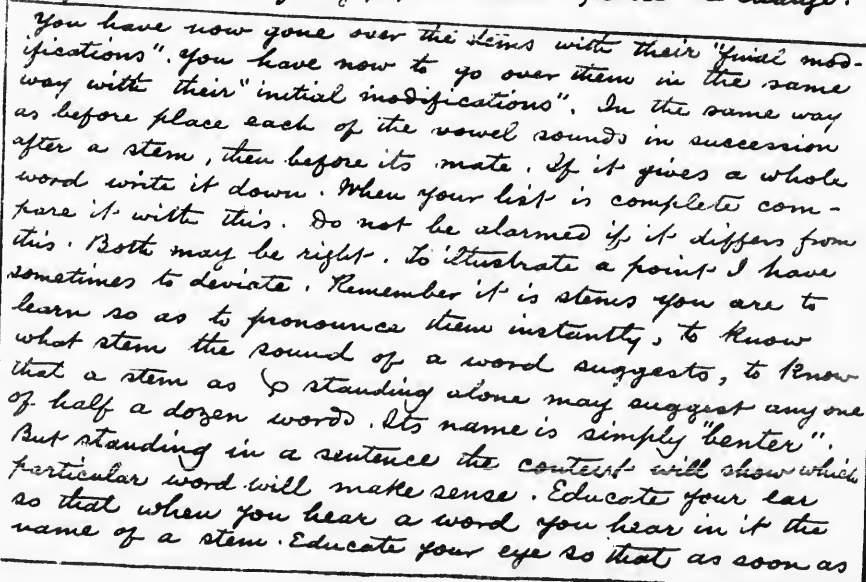 change.
You have now gone over the stems with their "final mod-
ifications". You have now to go over them in the same
way with their "initial modifications". In the same way
as before place each of the vowel sounds in succession
after a stem, then before its mate. If it gives a whole
word write it down. When your list is complete com-
pare it with this. Do not be alarmed if it differs from
this. Both may be right. To illustrate a point I have
sometimes to deviate. Remember it is stems you are to
learn so as to pronounce them instantly, to know
what stem the sound of a word suggests, to know
that a stem as standing alone may suggest any one
of half a dozen words. Its name is simply "benter".
But standing in a sentence the context will show which
particular word will make sense. Educate your ear
so that when you hear a word you hear in it the
name of a stem. Educate your eye so that as soon as